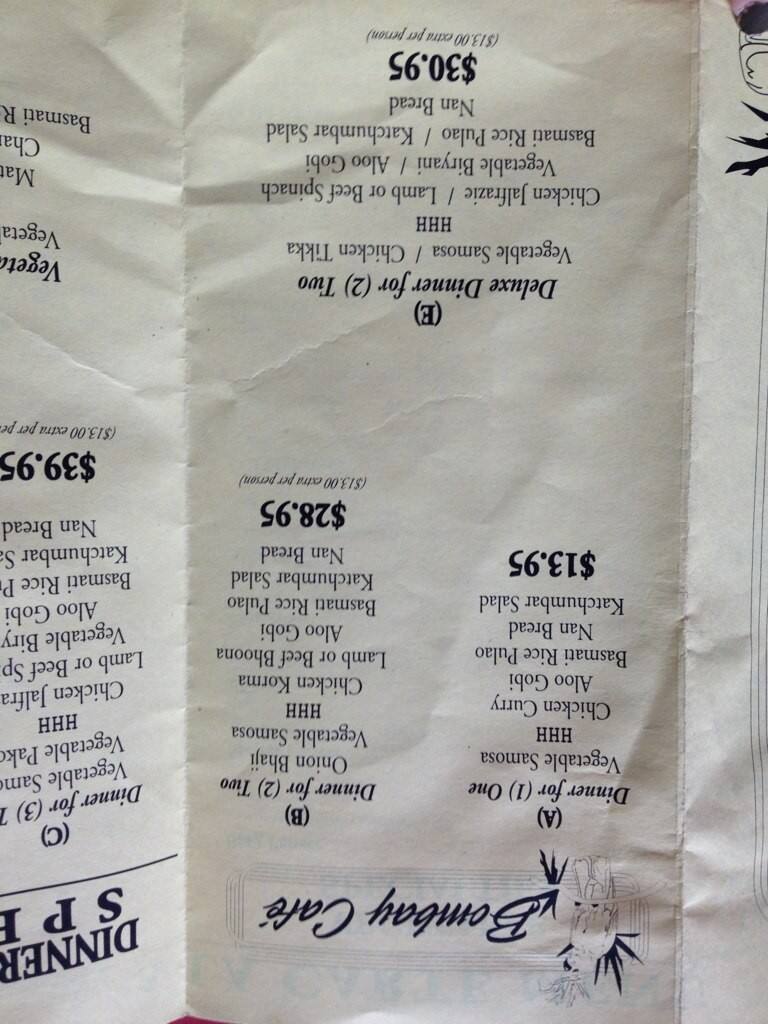 Bombay Café
(A)
Dinner for (1) One
Vegetable Samosa
HHH
Chicken Curry
Aloo Gobi
Basmati Rice Pulao
Nan Bread
Katchumbar Salad
$13.95
(B)
Dinner for (2) Two
Onion Bhaji
Vegetable Samosa
HHH
Chicken Korma
Lamb or Beef Bhoona
Aloo Gobi
Basmati Rice Pulao
Katchumbar Salad
Nan Bread
$28.95
($13.00 extra per person)
(E)
Deluxe Dinner for (2) Two
Vegetable Samosa / Chicken Tikka
HHH
Chicken Jalfrazie / Lamb or Beef Spinach
Vegetable Biryani / Aloo Gobi
Basmati Rice Pulao / Katchumbar Salad
Nan Bread
$30.95
($13.00 extra per person)
DINNER
S P E
(C)
Dinner for (3) T
Vegetable Samo
Vegetable Pako
HHH
Chicken Jalfra
Lamb or Beef Sp
Vegetable Biry
Aloo Gobi
Basmati Rice Pu
Katchumbar Sa
Nan Bread
$39.95
($13.00 extra per per
Vegeta
Vegeta
Mat
Cha
Basmati R